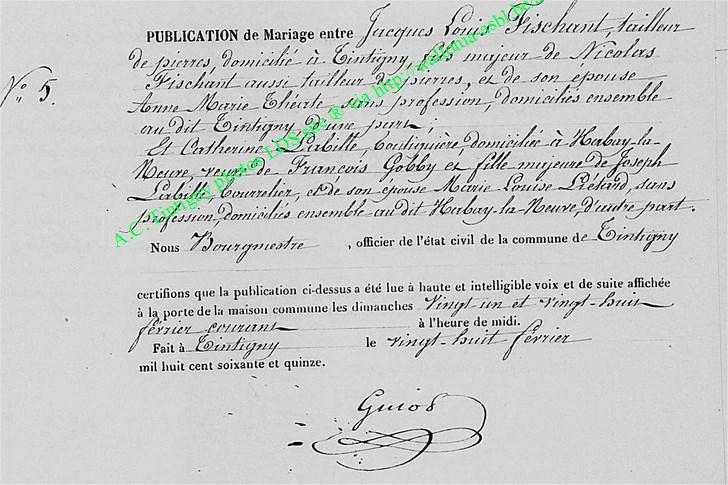 PUBLICATION de Mariage entre Jacques Louis Fischant, tailleur
de pierres, domicilié à Tintigny, fils majeur de Nicolas
N° 5.
Fischant aussi tailleur de pierres, et de son epouse
Anne Marie sans profession, domiciliés ensemble
au dit Tintigny, d'une part;
Et Catherine Labille, boutiquière, domiciliée à Habay-la-
Neuve, veuve de François Gobby et fille majeure de Joseph
Labille, bourrelier, et de son epouse Marie Louise Liétard, sans
profession, domiciliés ensemble au dit Habay-la-Neuve, d'autre part.
Nous Bourgmestre , officier de l'état civil de la commune de Tintigny
certifions que la publication ci-dessus a été lue à haute et intelligible voix et de suite affichée
à la porte de la maison commune les dimanches vingt un et vingt-huit
février courant à l'heure de midi.
Fait à Tintigny le vingt-huit février
mil huit cent soixante et quinze.
A.C. Tintigny photos LDS site ® via http://wallonia-asbl.be